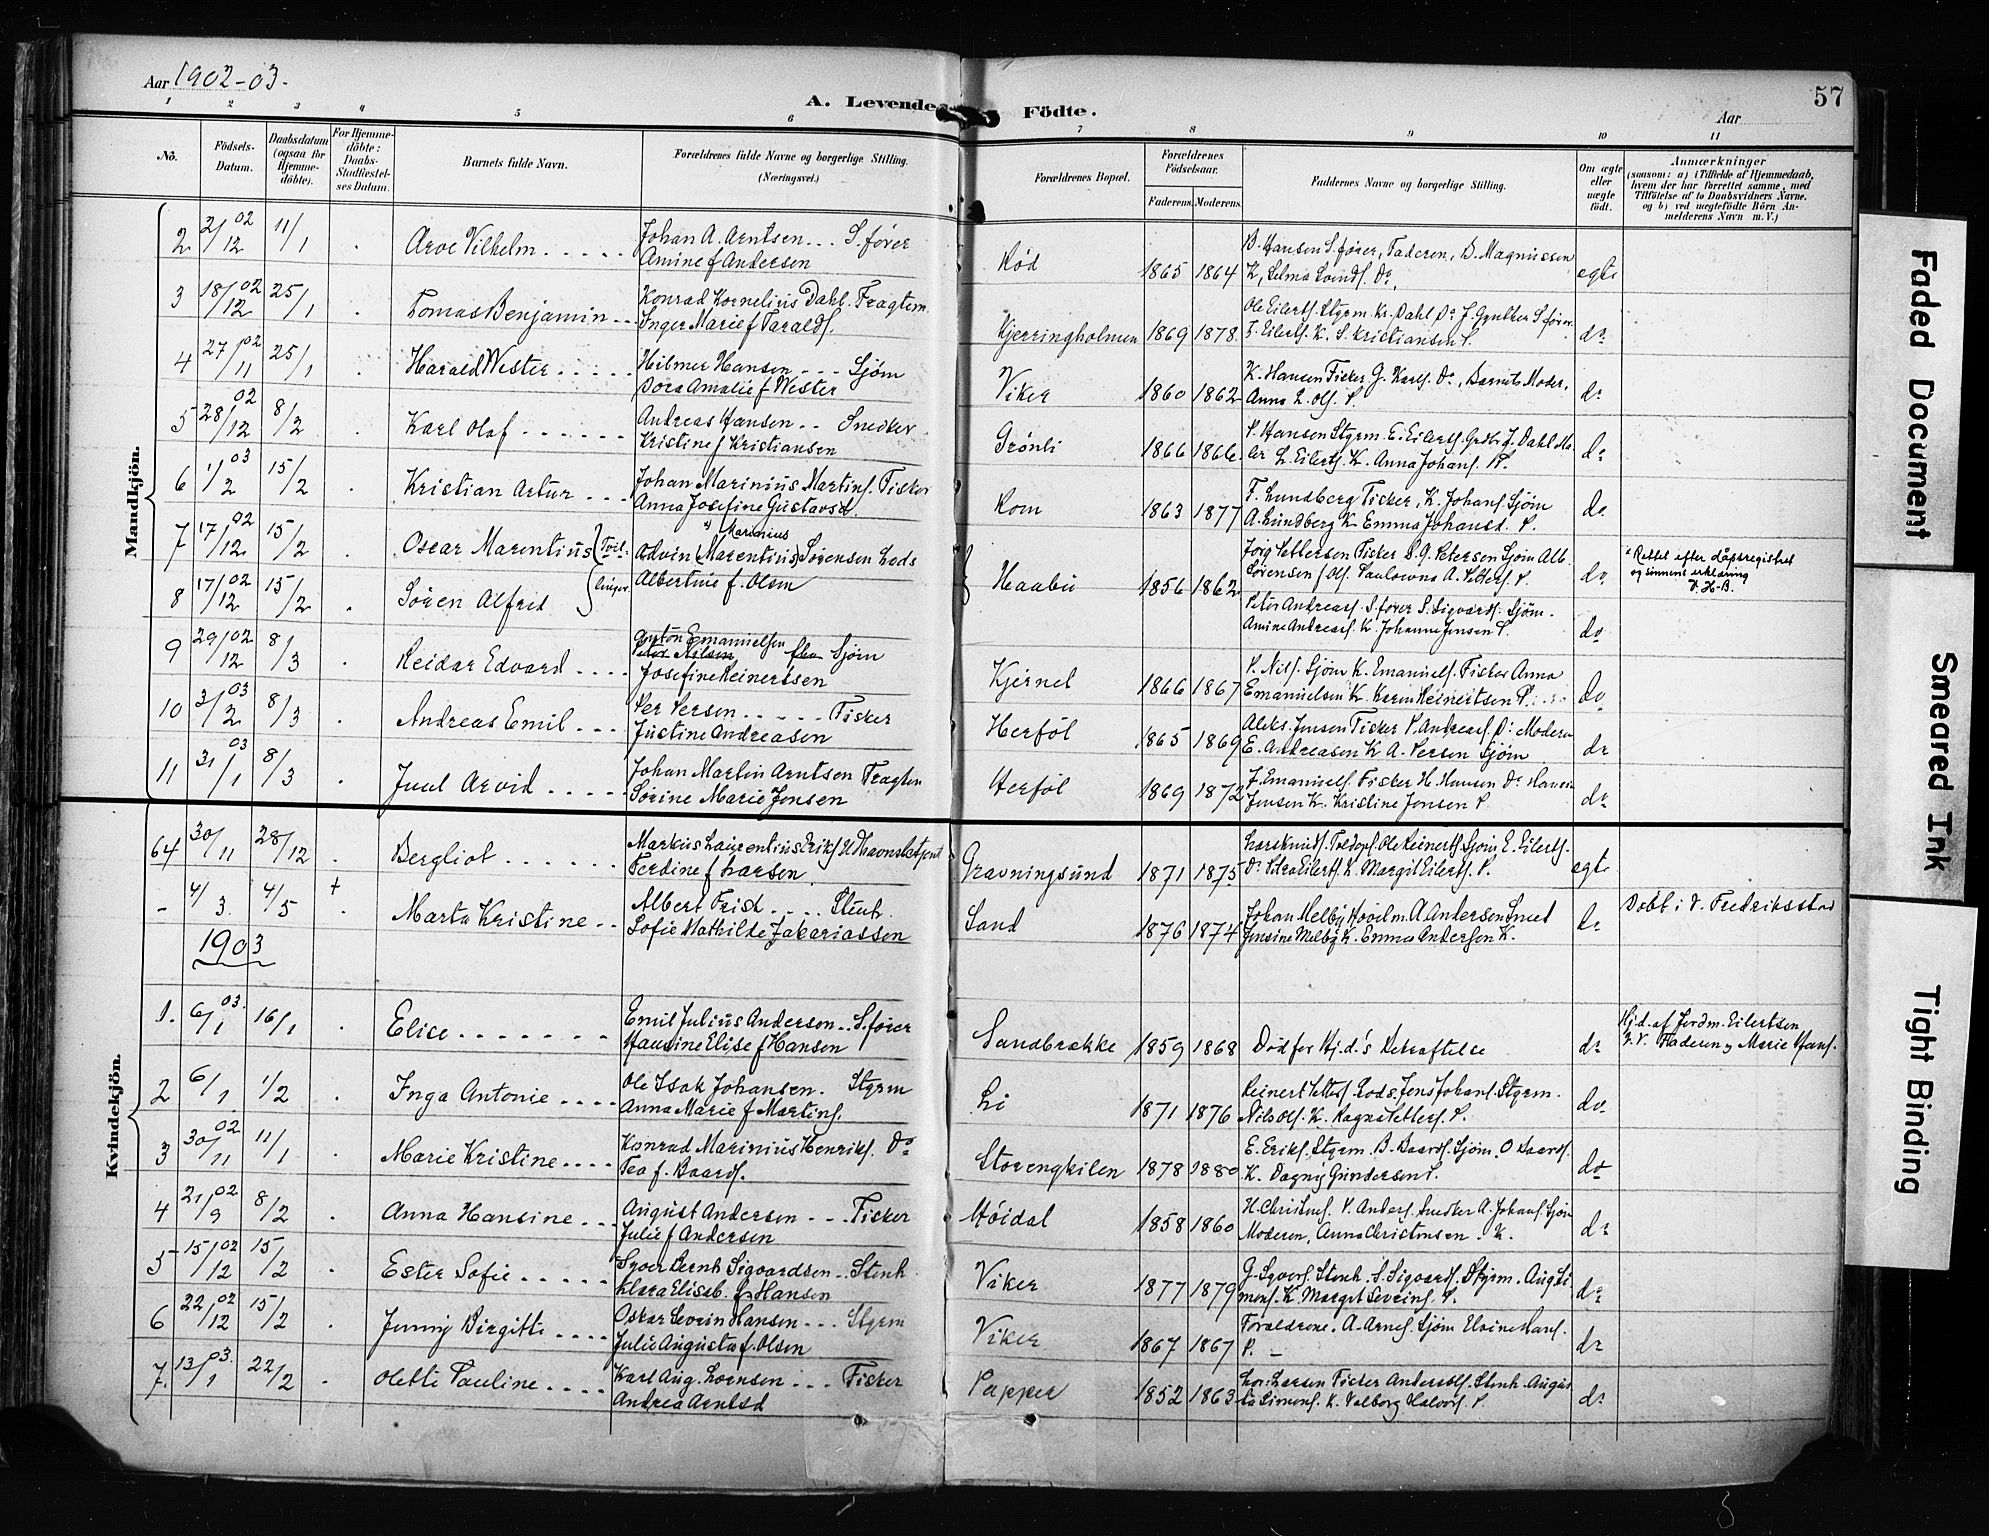 Aar 1902-03.
A. Levende Födte.
57
Aar
1 2 3 4 5 6 7 8 9 10 11
No.
Födsels-Datum.
Daabsdatum (ogsaa for Hjemme-döbte).
For Hjemme-döbte: Daabs-Stadfæstel-ses Datum.
Barnets fulde Navn.
Forældrenes fulde Navne og borgerlige Stilling. (Næringsvei.)
Forældrenes Bopæl.
Forældrenes Födselsaar.
Faderens. Moderens.
Faddernes Navne og borgerlige Stilling.
Om ægte eller uægte födt.
Anmærkninger
(saasom: a) i Tilfælde af Hjemmedaab, hvem der har forrettet samme, med Tilföielse af to Daabsvidners Navne. og b) ved uegtefödte Börn An-melderens Navn m. V.)
Mandkjön.
2 2/12 02 11/1 . Arve Vilhelm Johan A. Arntsen S.fører Rød 1865 1864 B. Hansen S.fører, Faderen, B. Magnussen egte
Amine f Andersen K, Selma Svinds. Do.
3 18/12 02 25/1 . Tomas Benjamin Konrad Kornelius Dahl. Fragtem. Kjerringholmen 1869 1878. Ole Eilerts. Styrm. Kr. Dahl, Do J. Gynther S.fører do
Inger Marie f Taralds. T. Eilerts. K. S. Kristiansen P.
4 27/11 02 25/1 . Harald Wester Hilmer Hansen Sjøm Viker 1860 1862 K. Hansen Fisker G. Karls. Do, Barnets Moder, do
Dora Amalie f Wester Anna L. Ols. P.
5 28/12 02 8/2 Karl Olaf Andreas Hansen Snedker Grønli 1866 1866. P. Hansen Styrm. E. Eilerts. Grdbr J. Dahl Ma- do
Kristine f Kristiansen ler L. Eilerts. K. Anna Johans. P.
6 1/2 03 15/2 . Kristian Artur Johan Marinius Martins. Fisker Rom 1863 1877 F. Lundberg Fisker, K. Johans. Sjøm do.
Anna Josefine Gustavsd. A. Lundberg K Emma Johansd. P.
7 17/12 02 15/2 . Oscar Marentius Tvil- x Marinius
Advin (Marentius) Sørensen Lods Haabu 1856 1862 Jørg. Pettersen Fisker S. G. Petersen Sjøm Alb. do. x Rettet efter dåpsregistret
og sinnens erklæring
V. H-B.
8 17/12 02 15/2 . Søren Alfred linger. Albertine f. Olsen Sørensen f Ols. Paulowna A. Petters. P.
Peter Andreass. S.fører S. Sigvards. Sjøm. do
Amine Andreass. K. Johanne Jensen P.
9 29/12 02 8/3 . Reidar Edvard Anton Emanuelsen
Peter Nilsen Sjøm Kjernel 1866 1867 P. Nils. Sjøm K. Emanuels. Fisker Anna do
Josefine Reinertsen Emanuelsen K. Karin Reinertsen P.
10 3/2 03 8/3 . Andreas Emil Per Persen Fisker Herføl 1865 1869 Aleks. Jensen Fisker P. Andreass. Do Modern do
Justine Andreasen E. Andreasen K A. Persen Sjøm
11 31/1 03 8/3 . Juul Arvid Johan Martin Arntsen Fragtem Herføl 1869 1872 J. Emanuels. Fisker H. Hansen Do Hansin do
Sørine Marie Jensen Jensen K. Kristine Jensen P.
Kvindekjön.
64 30/11 28/12 . Bergliot Markus Laurentius Eriks. H Havnebetjent Gravningsund 1871 1875 Lars Knuds. Tredops Ole Reinerts. Sjøm E. Eilerts. egte
Ferdine f Larsen Do Petra Eilerts. K. Margit Eilerts. P.
- 4/3. 4/5 + . Marta Kristine Albert Frid Stenh. Sand 1876 1874 Johan Melby Høvelm. A. Andersen Smed do Døbt i V. Fredriksstad
Sofie Mathilde Zakariassen Jensine Melby K. Emma Anderson K.
1903
1. 6/1 03. 16/1 . Elice Emil Julius Anderson S.fører Sandbrække 1859 1868 Død før Hj.d.'s Bekræftelse do Hj.d. af Jordm. Eilertsen
T.V. Faderen og Marie Hans.
Hansine Elise f Hansen
2 6/1 1/2 . Inga Antonie Ole Isak Johansen. Styrm Li 1871 1876 Reinert Petters. Lods. Jens Johans. Styrm. do
Anna Marie f Martins. Nils Ols. K. Ragna Petters. P.
3 30/11 02 11/1 . Marie Kristine Konrad Marinius Henriks. Do Storengkilen 1878 1880 E. Eriks. Styrm. B. Baards. Sjøm. O Baards. do
Tea f. Baards. K. Dagny Gundersen P.
4 21/9 02 8/2 . Anna Hansine August Andersen Fisker Høidal 1858 1860 H. Christens. P. Anders. Snedker A. Johans. Sjøm do
Julie f Andersen Moderen, Anna Christensen. K.
5 15/12 02 15/2 . Ester Sofie Syver Bernh Sigvardsen Stenh Viker 1877 1879 G. Syvers. Stenh. S. Sigvards. Styrm. Aug Si do
Klara Elisab. f Hansen mons. K. Margit Severins. P.
6 22/12 02 15/2 . Jenny Birgitte Oskar Severin Hansen Styrm Viker 1867 1867 Forældrene. A. Arnes. Sjøm Elvine Hans. do
Julie Augusta f. Olsen P. –
7. 13/1 03. 22/2 . Olette Pauline Karl Aug. Lorensen Fisker Papper 1852 1863 Lor. Larsen Fisker Anders Ols. Stenh. Augus do
Andrea Arntsd ta Simons. K. Valborg Halvors. P.
Faded Document
Smeared Ink
Tight Binding